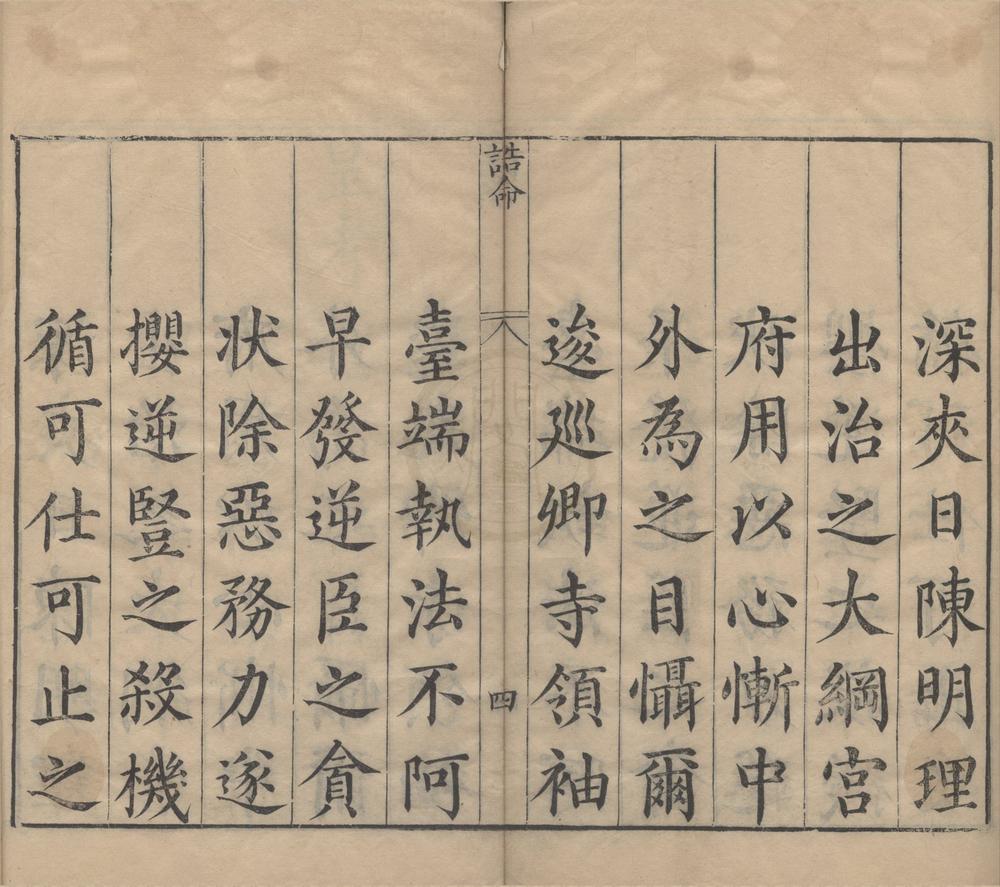 深夾日陳明理
出治之大綱宮
府用以心慚中
外為之目懾爾
逡廵卿寺領袖
誥命
四
臺端執法不阿
早發逆臣之貪
狀除惡務力遂
攖逆豎之殺機
循可仕可止之